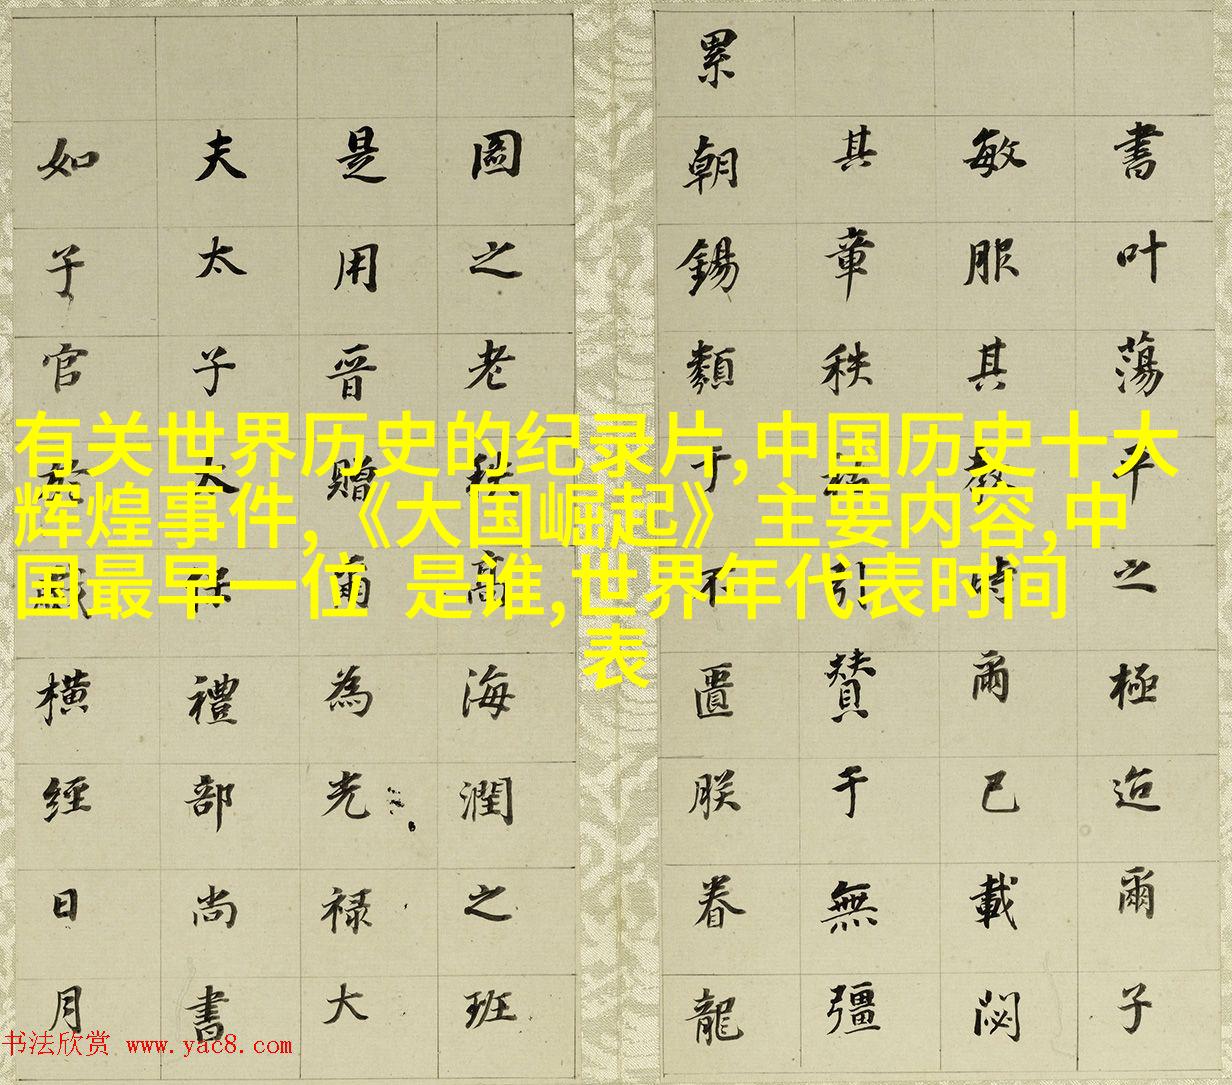 書叶蕩平之極迨爾子
敏服其教時爾已載閟
其章秩引贊于無彊
累朝錫類于不匱朕眷龍
圖之老高海潤之班
是用晋贈爾為光禄大
夫太子太保禮部尚書
如子官橫經日月
有关世界历史的纪录片,中国历史十大
辉煌事件,《大国崛起》主要内容,中
国最早一位 是谁,世界年代表时间
表
书法欣赏 www.yac8.com